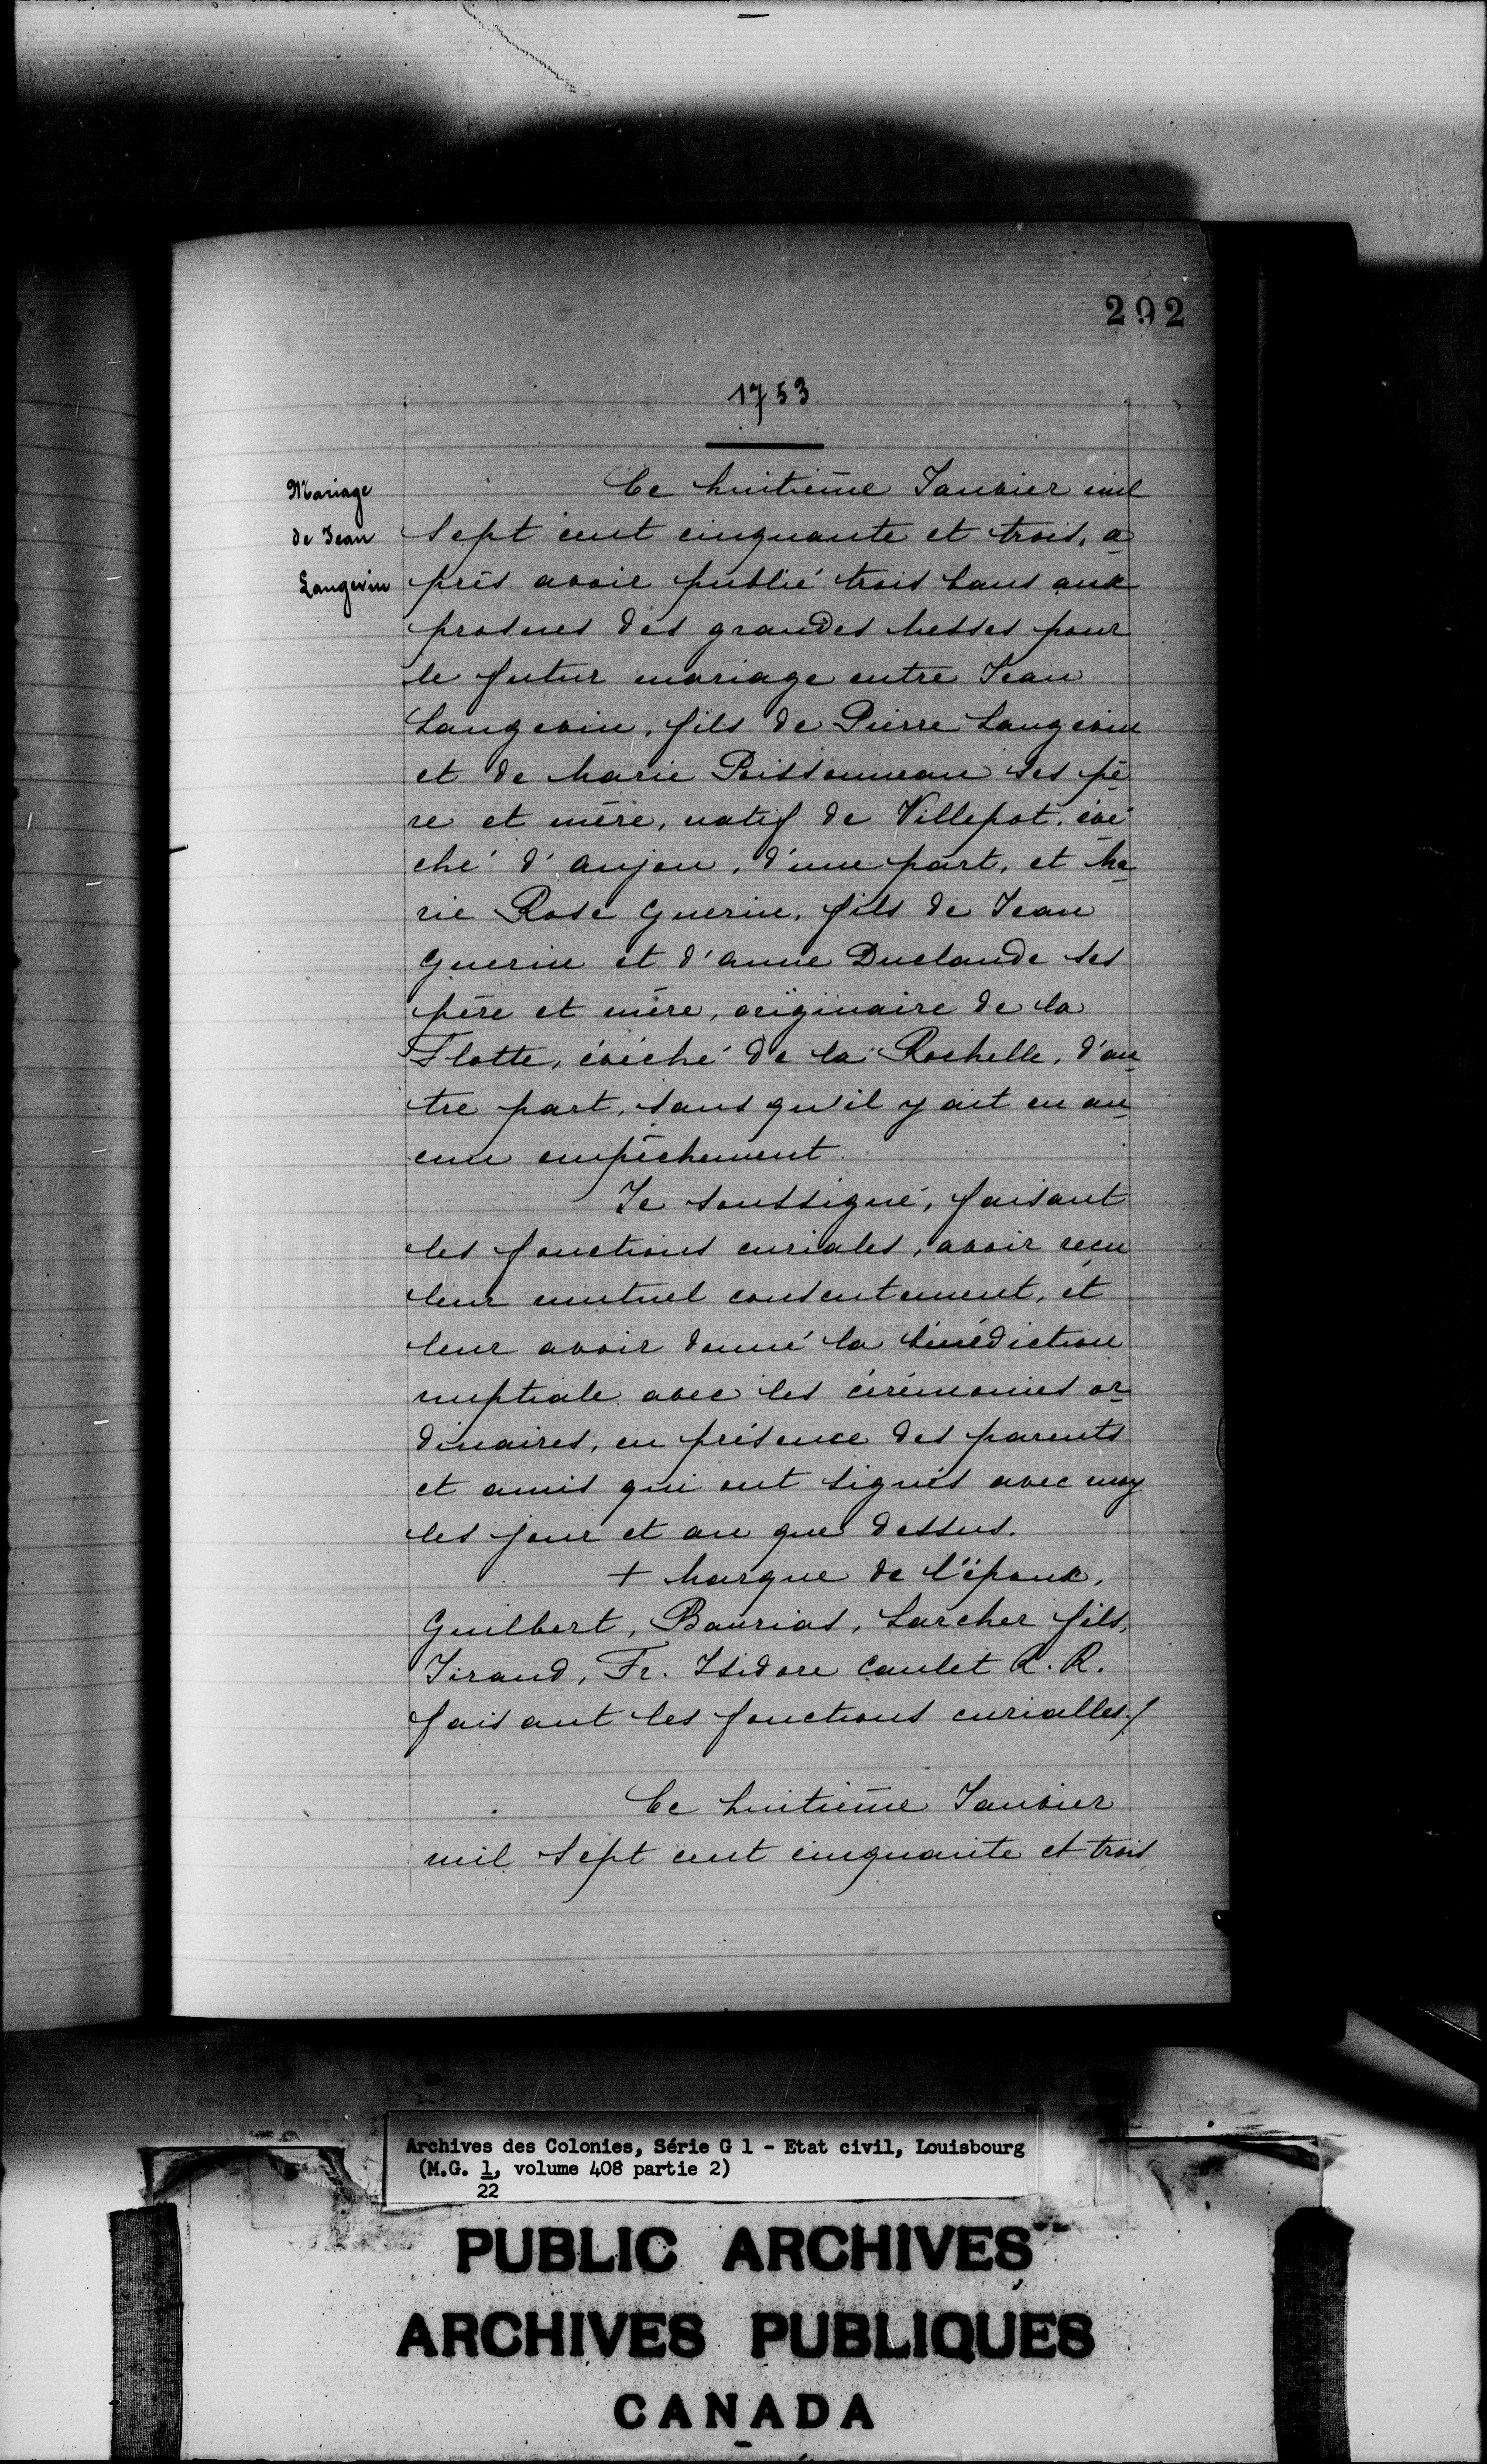 292
1753
Mariage
de Jean
Langevin
Ce huitième Janvier mil
sept cent cinquante et trois, a
près avoir publié trois bans aux
prosnes des grandes Messes pour
le futur mariage entre Jean
Langevin, fils de Pierre Langevin
et de Marie Poissonneau ses pè
re et mère, natif de Villepot, évê
ché d'Anjou, d'une part, et Ma
rie Rose Guerin, fils de Jean
Guerin et d'Anne Duclaude ses
père et mère, originaire de la
Flotte, évêché de la Rochelle, d'au
tre part, sans qu'il y ait eu au
cun empêchement.
Je soussigné, faisant
les fonctions curiales, avoir reçu
leur mutuel consentement, et
leur avoir donné la bénédiction
nuptiale avec les cérémonies or
dinaires, en présence des parents
et amis qui ont signés avec moy
les jour et an que dessus.
+ Marque de l'époux,
Guilbert, Baurias, Larcher fils,
Giraud, Fr. Isidore Caulet R. R.
faisant les fonctions curialles./
Ce huitième Janvier
mil sept cent cinquante et trois
Archives des Colonies, Série G 1 - Etat civil, Louisbourg
(M.G. 1, volume 408 partie 2)
22
PUBLIC ARCHIVES
ARCHIVES PUBLIQUES
CANADA